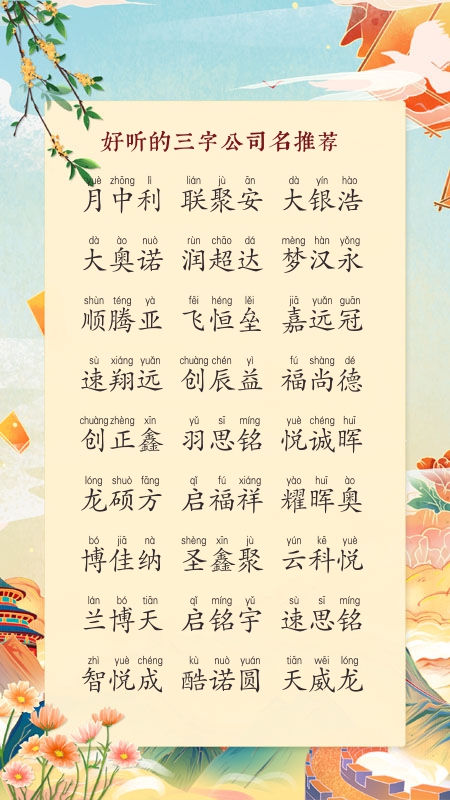 好听的三字公司名推荐
yuè zhōng lì lián jù ān dà yín hào
月中利 联聚安 大银浩
dà ào nuò rùn chāo dá mèng hàn yǒng
大奥诺 润超达 梦汉永
shùn téng yà fēi héng lěi jiā yuǎn guān
顺腾亚 飞恒垒 嘉远冠
sù xiáng yuǎn chuàng chén yì fú shàng dé
速翔远 创辰益 福尚德
chuàng zhèng xīn yǔ sī míng yuè chéng huī
创正鑫 羽思铭 悦诚晖
lóng shuò fāng qǐ fú xiáng yào huī ào
龙硕方 启福祥 耀晖奥
bó jiā nà shèng xīn jù yún kē yuè
博佳纳 圣鑫聚 云科悦
lán bó tiān qǐ míng yǔ sù sī míng
兰博天 启铭宇 速思铭
zhì yuè chéng kù nuò yuán tiān wēi lóng
智悦成 酷诺圆 天威龙